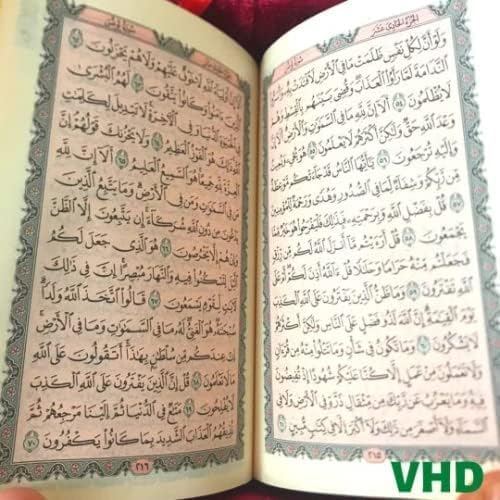 الجزء الحادي عشر
سورة يونس
وَلَوْ أَنَّ لِكُلِّ نَفْسٍ ظَلَمَتْ مَا فِي الْأَرْضِ لَافْتَدَتْ بِهِ وَأَسَرُّوا
النَّدَامَةَ لَمَّا رَأَوُا الْعَذَابَ وَقُضِيَ بَيْنَهُم بِالْقِسْطِ وَهُمْ
لَا يُظْلَمُونَ ٥٤ أَلَا إِنَّ لِلَّهِ مَا فِي السَّمَاوَاتِ وَالْأَرْضِ أَلَا إِنَّ
وَعْدَ اللَّهِ حَقٌّ وَلَٰكِنَّ أَكْثَرَهُمْ لَا يَعْلَمُونَ ٥٥ هُوَ يُحْيِي وَيُمِيتُ
وَإِلَيْهِ تُرْجَعُونَ ٥٦ يَا أَيُّهَا النَّاسُ قَدْ جَاءَتْكُم مَّوْعِظَةٌ
مِّن رَّبِّكُمْ وَشِفَاءٌ لِّمَا فِي الصُّدُورِ وَهُدًى وَرَحْمَةٌ لِّلْمُؤْمِنِينَ
٥٧ قُلْ بِفَضْلِ اللَّهِ وَبِرَحْمَتِهِ فَبِذَٰلِكَ فَلْيَفْرَحُوا هُوَ خَيْرٌ مِّمَّا
يَجْمَعُونَ ٥٨ قُلْ أَرَأَيْتُم مَّا أَنزَلَ اللَّهُ لَكُم مِّن رِّزْقٍ
فَجَعَلْتُم مِّنْهُ حَرَامًا وَحَلَالًا قُلْ آللَّهُ أَذِنَ لَكُمْ أَمْ عَلَى اللَّهِ
تَفْتَرُونَ ٥٩ وَمَا ظَنُّ الَّذِينَ يَفْتَرُونَ عَلَى اللَّهِ الْكَذِبَ
يَوْمَ الْقِيَامَةِ إِنَّ اللَّهَ لَذُو فَضْلٍ عَلَى النَّاسِ وَلَٰكِنَّ أَكْثَرَهُمْ
لَا يَشْكُرُونَ ٦٠ وَمَا تَكُونُ فِي شَأْنٍ وَمَا تَتْلُو مِنْهُ مِن قُرْآنٍ
وَلَا تَعْمَلُونَ مِنْ عَمَلٍ إِلَّا كُنَّا عَلَيْكُمْ شُهُودًا إِذْ تُفِيضُونَ
فِيهِ وَمَا يَعْزُبُ عَن رَّبِّكَ مِن مِّثْقَالِ ذَرَّةٍ فِي الْأَرْضِ وَلَا فِي
السَّمَاءِ وَلَا أَصْغَرَ مِن ذَٰلِكَ وَلَا أَكْبَرَ إِلَّا فِي كِتَابٍ مُّبِينٍ ٦١
٢١٥
سورة يونس
أَلَا إِنَّ أَوْلِيَاءَ اللَّهِ لَا خَوْفٌ عَلَيْهِمْ وَلَا هُمْ يَحْزَنُونَ ٦٢
الَّذِينَ آمَنُوا وَكَانُوا يَتَّقُونَ ٦٣ لَهُمُ الْبُشْرَىٰ
فِي الْحَيَاةِ الدُّنْيَا وَفِي الْآخِرَةِ لَا تَبْدِيلَ لِكَلِمَاتِ
اللَّهِ ذَٰلِكَ هُوَ الْفَوْزُ الْعَظِيمُ ٦٤ وَلَا يَحْزُنكَ قَوْلُهُمْ إِنَّ
الْعِزَّةَ لِلَّهِ جَمِيعًا هُوَ السَّمِيعُ الْعَلِيمُ ٦٥ أَلَا إِنَّ لِلَّهِ
مَن فِي السَّمَاوَاتِ وَمَن فِي الْأَرْضِ وَمَا يَتَّبِعُ الَّذِينَ
يَدْعُونَ مِن دُونِ اللَّهِ شُرَكَاءَ إِن يَتَّبِعُونَ إِلَّا الظَّنَّ
وَإِنْ هُمْ إِلَّا يَخْرُصُونَ ٦٦ هُوَ الَّذِي جَعَلَ لَكُمُ
اللَّيْلَ لِتَسْكُنُوا فِيهِ وَالنَّهَارَ مُبْصِرًا إِنَّ فِي ذَٰلِكَ
لَآيَاتٍ لِّقَوْمٍ يَسْمَعُونَ ٦٧ قَالُوا اتَّخَذَ اللَّهُ وَلَدًا
سُبْحَانَهُ هُوَ الْغَنِيُّ لَهُ مَا فِي السَّمَاوَاتِ وَمَا فِي الْأَرْضِ
إِنْ عِندَكُم مِّن سُلْطَانٍ بِهَٰذَا أَتَقُولُونَ عَلَى اللَّهِ
مَا لَا تَعْلَمُونَ ٦٨ قُلْ إِنَّ الَّذِينَ يَفْتَرُونَ عَلَى اللَّهِ الْكَذِبَ
لَا يُفْلِحُونَ ٦٩ مَتَاعٌ فِي الدُّنْيَا ثُمَّ إِلَيْنَا مَرْجِعُهُمْ ثُمَّ
نُذِيقُهُمُ الْعَذَابَ الشَّدِيدَ بِمَا كَانُوا يَكْفُرُونَ ٧٠
٢١٦
VHD